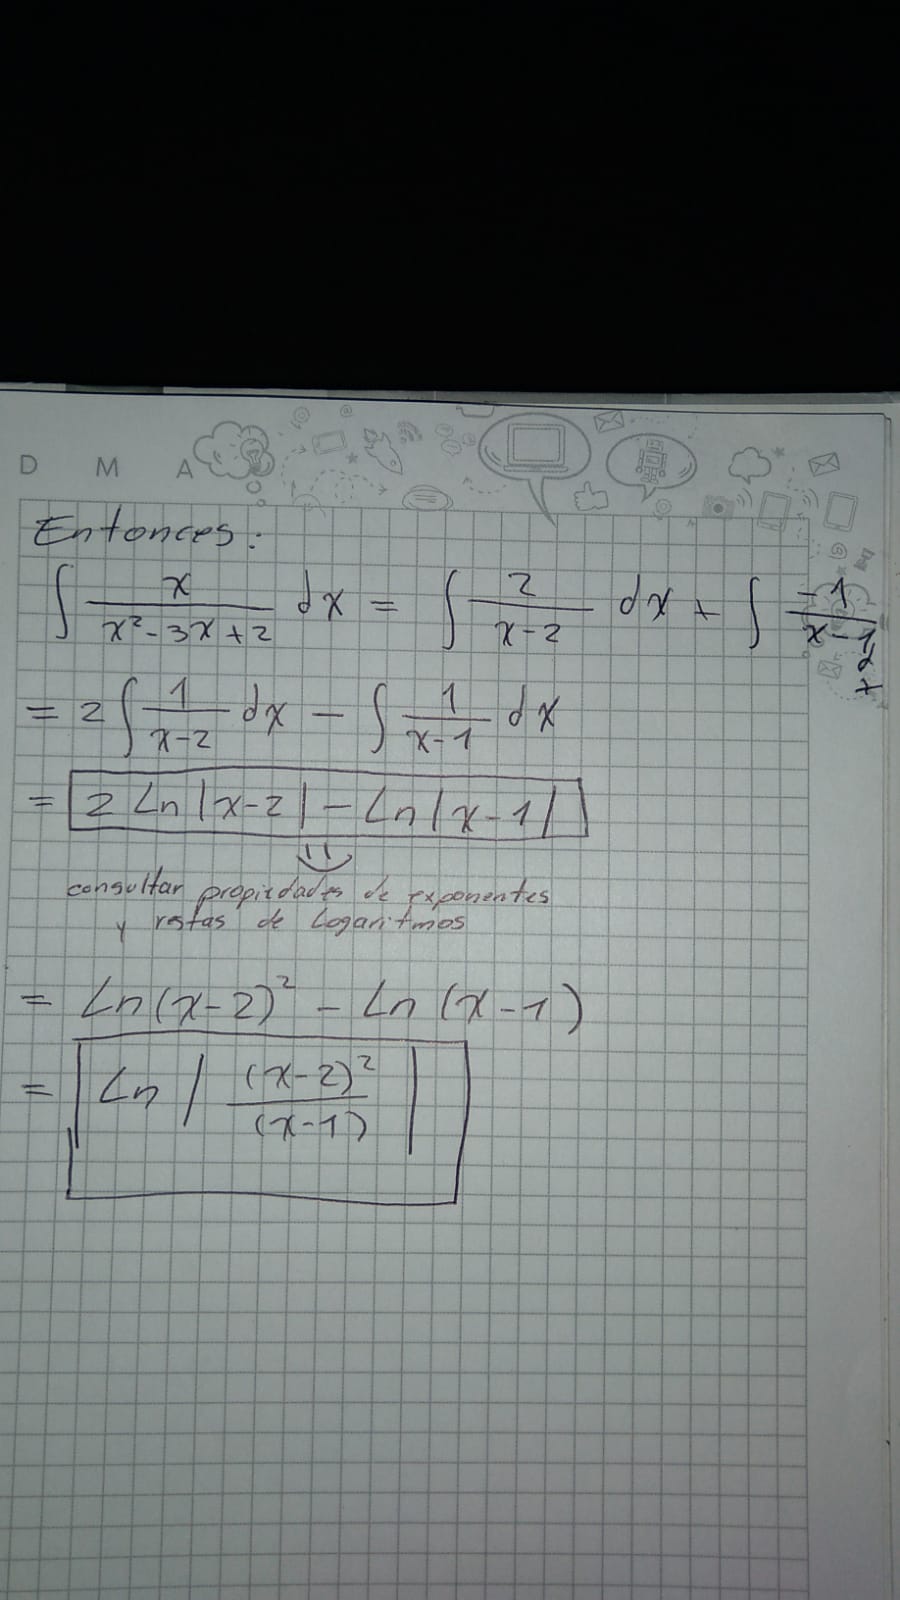 D M A
Entonces:
∫ x/(x²-3x+2) dx = ∫ 2/(x-2) dx + ∫ -1/(x-1) dx
= 2∫ 1/(x-2) dx - ∫ 1/(x-1) dx
= 2 Ln|x-2| - Ln|x-1|
consultar propiedades de exponentes
y restas de Logaritmos
= Ln(x-2)² - Ln(x-1)
= Ln |(x-2)²/(x-1)|